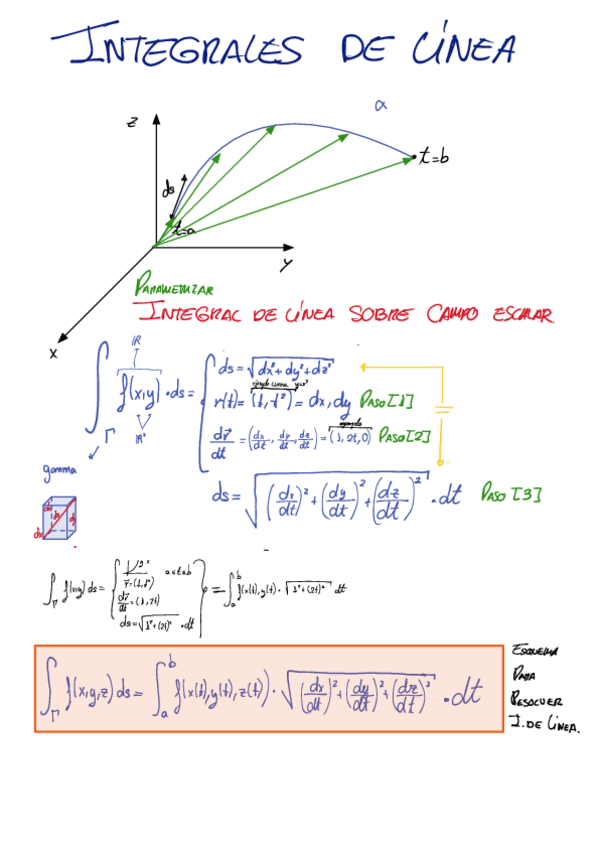 INTEGRALES DE LÍNEA
α
z
t=b
ds
t=a
y
PARAMETRIZAR
INTEGRAL DE LÍNEA SOBRE CAMPO ESCALAR.
x
IR
∫Γ f(x,y)·ds =
IR²
Γ
gamma
ds = √(dx²+dy²+dz²)
r(t) = (t, t²) = dx, dy PASO [1]
dr/dt = (dx/dt, dy/dt, dz/dt) = (1, 2t, 0) PASO [2]
ds = √((dx/dt)²+(dy/dt)²+(dz/dt)²) · dt PASO [3]
∫Γ f(x,y) ds =
a<t<b
r=(t,t²)
dr/dt = (1, 2t)
ds = √(1²+(2t)²) · dt
= ∫ₐᵇ f(x(t), y(t)) · √(1²+(2t)²) dt
∫Γ f(x,y,z) ds = ∫ₐᵇ f(x(t), y(t), z(t)) · √((dx/dt)²+(dy/dt)²+(dz/dt)²) · dt
ESQUEMA
PARA
RESOLVER
I. DE LÍNEA.